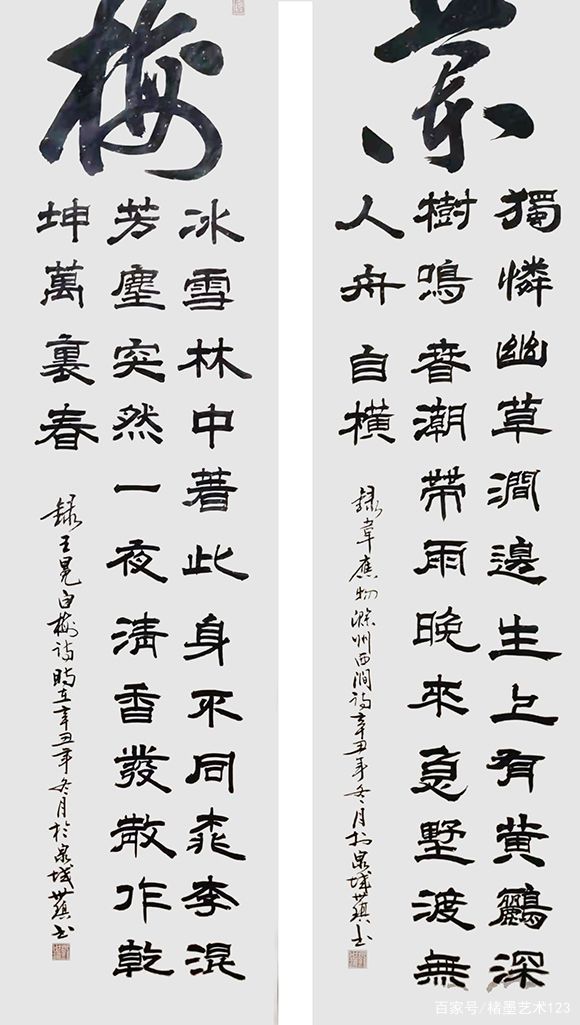 蘭
獨憐幽草澗邊生上有黄鸝深
樹鳴春潮帶雨晚來急墅渡無
人舟自橫
録韋應物滁州西澗詩辛丑年冬月於泉城書
梅
冰雪林中著此身不同桃李混
芳塵突然一夜清香發散作乾
坤萬裏春
録王冕白梅詩時在辛丑年冬月於泉城書
百家号/楮墨艺术123